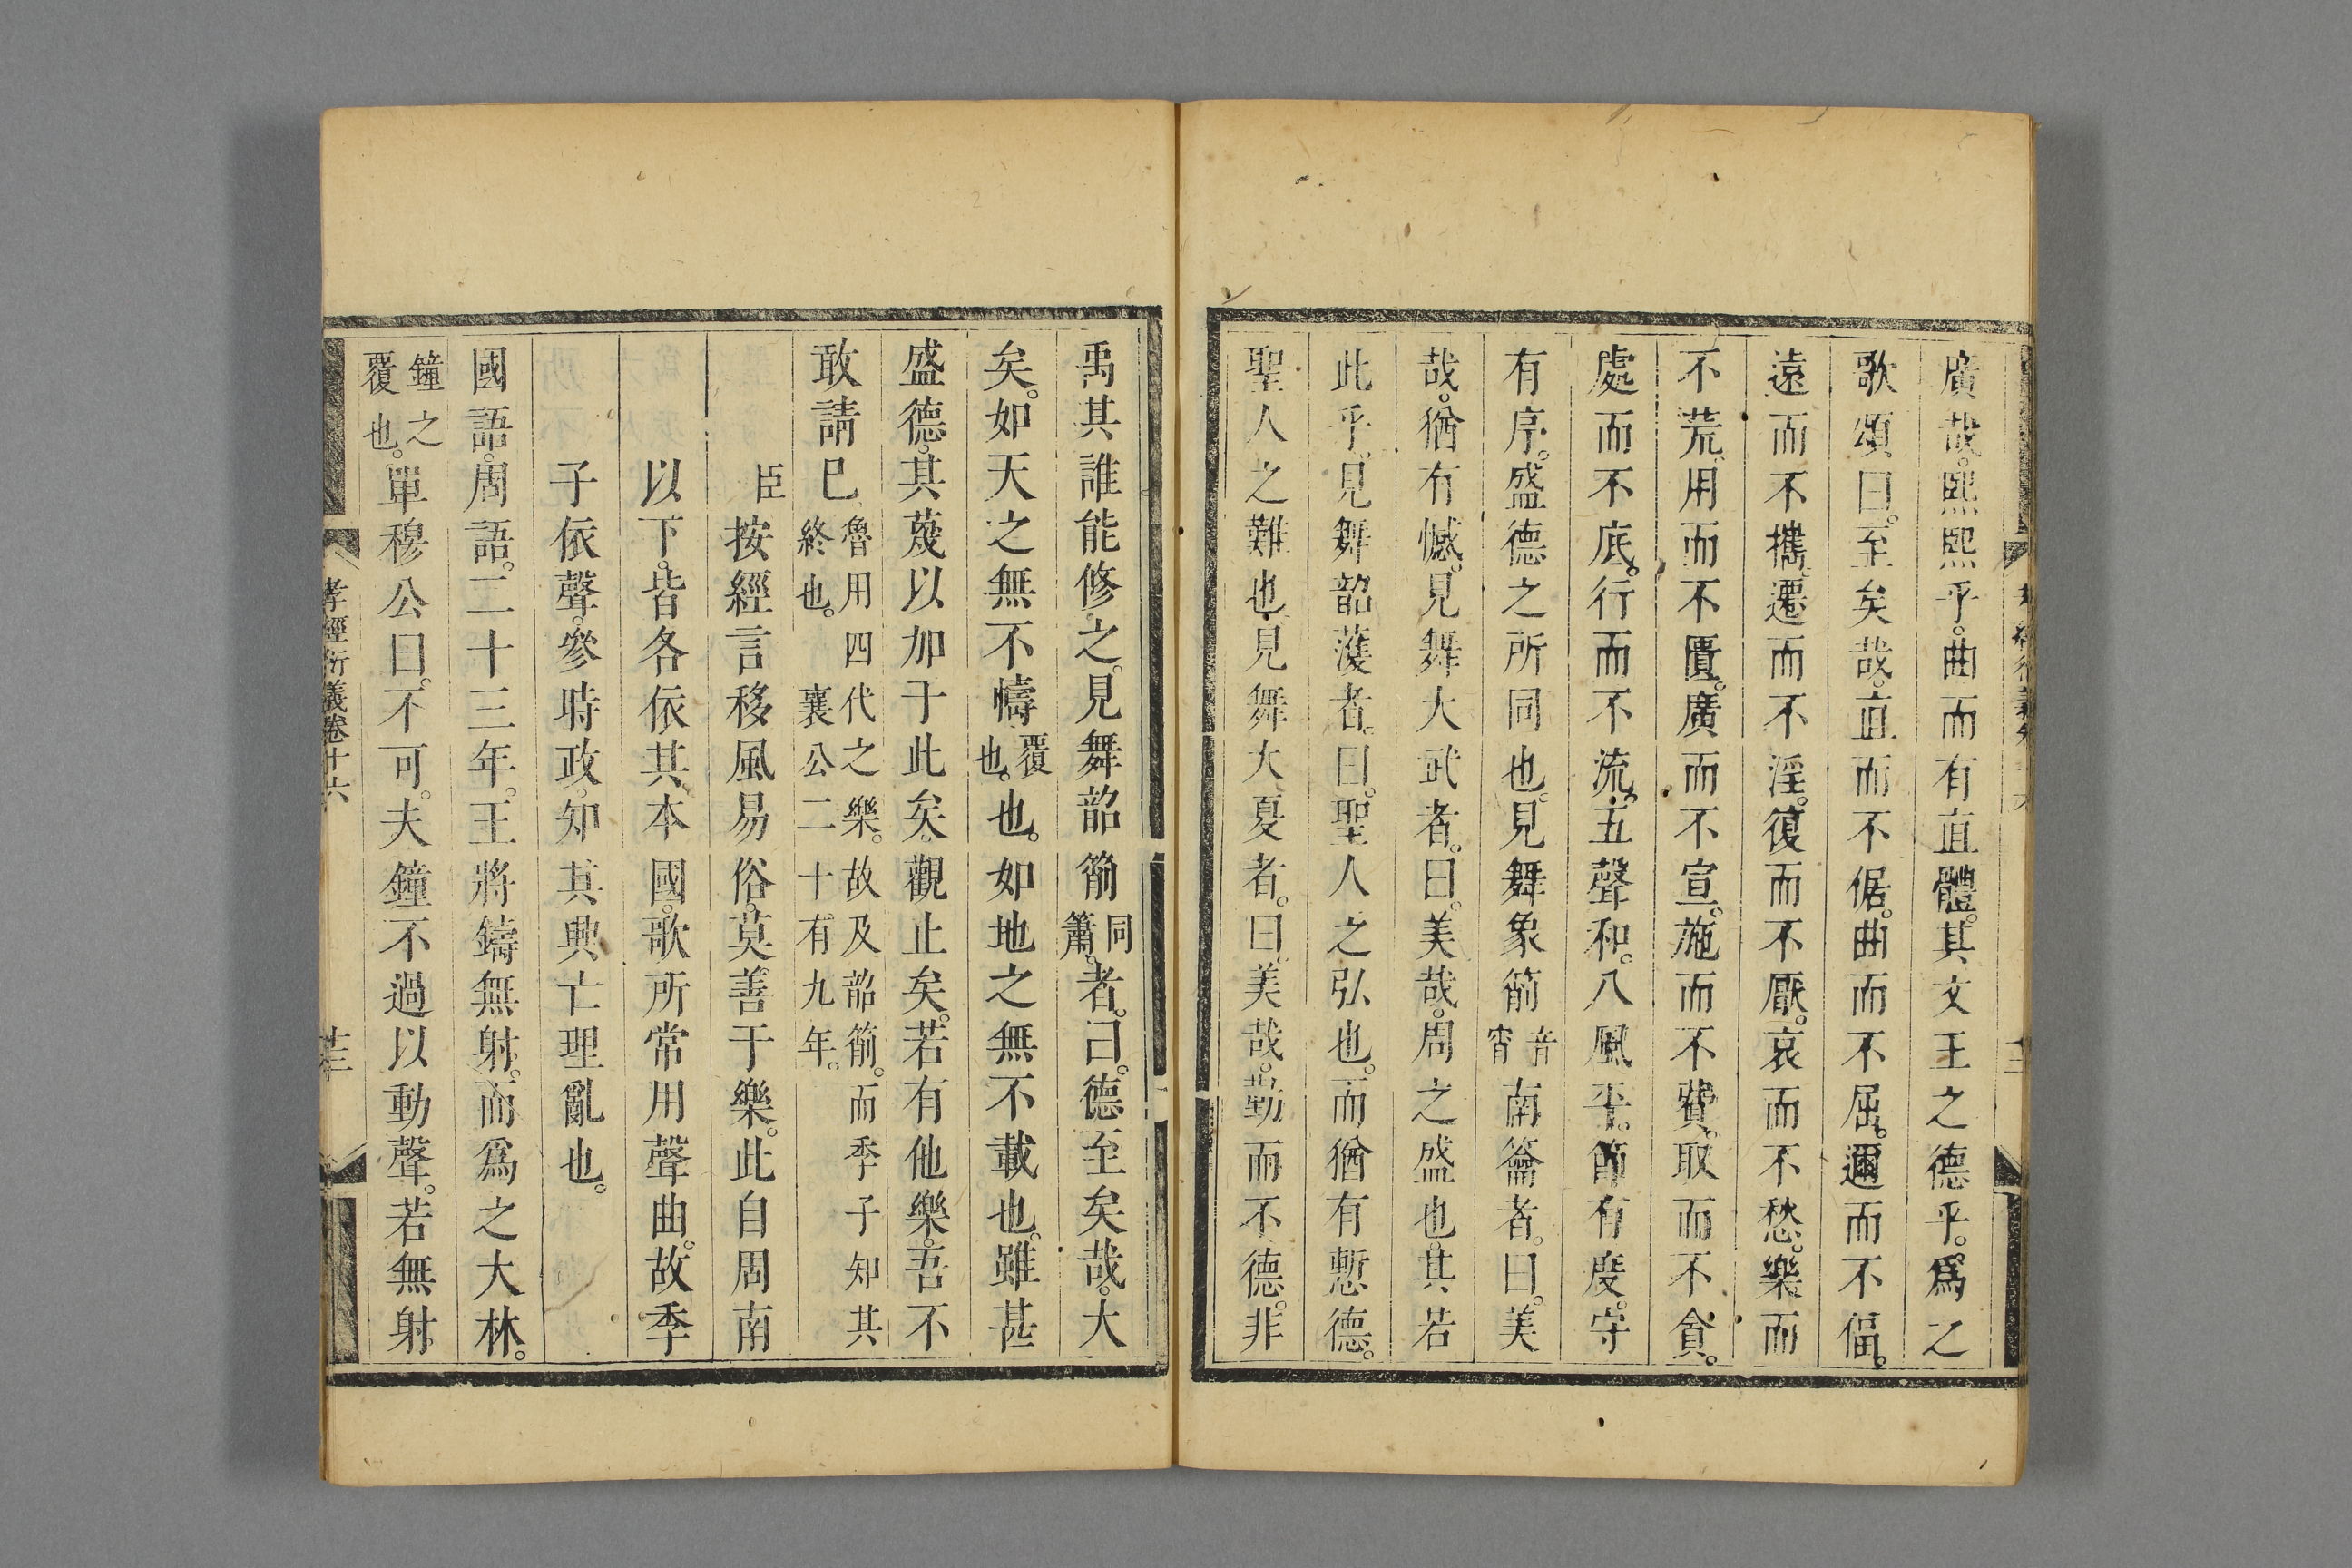 廣哉。熙熙乎。曲而有直體。其文王之德乎。爲之
歌頌曰。至矣哉。直而不倨。曲而不屈。邇而不偪。
遠而不攜。遷而不淫。復而不厭。哀而不愁。樂而
不荒。用而不匱。廣而不宣。施而不費。取而不貪。
處而不底。行而不流。五聲和。八風平。節有度。守
有序。盛德之所同也。見舞象箾音宵南籥者。曰。美
哉。猶有憾。見舞大武者。曰。美哉。周之盛也。其若
此乎。見舞韶濩者。曰。聖人之弘也。而猶有慙德。
聖人之難也。見舞大夏者。曰。美哉。勤而不德。非
禹其誰能修之。見舞韶箾同簫。者。曰。德至矣哉。大
矣。如天之無不幬覆也。也。如地之無不載也。雖甚
盛德。其蔑以加于此矣。觀止矣。若有他樂。吾不
敢請已魯用四代之樂。故及韶箾。而季子知其終也。襄公二十有九年。
臣按經言移風易俗。莫善于樂。此自周南
以下。皆各依其本國。歌所常用聲曲。故季
子依聲。參時政。知其興亡理亂也。
國語。周語。二十三年。王將鑄無射。而爲之大林。
鐘之覆也。單穆公曰。不可。夫鐘不過以動聲。若無射
孝經衍義卷十六